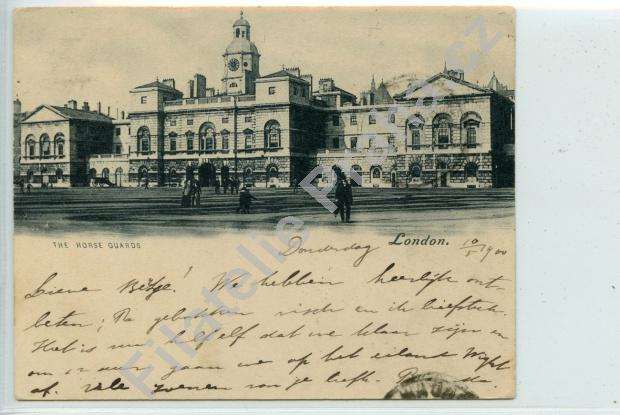 THE HORSE GUARDS
London.
Donderdag 10/5 1900
Lieve Betje! We hebben heerlijk ont-
beten; gebakken visch en ik biefstuk.
Het is nu half elf dat we klaar zijn en
om uur gaan we op het eiland Wight
af. vele zoenen van je liefh.
Filatelie Praha.cz